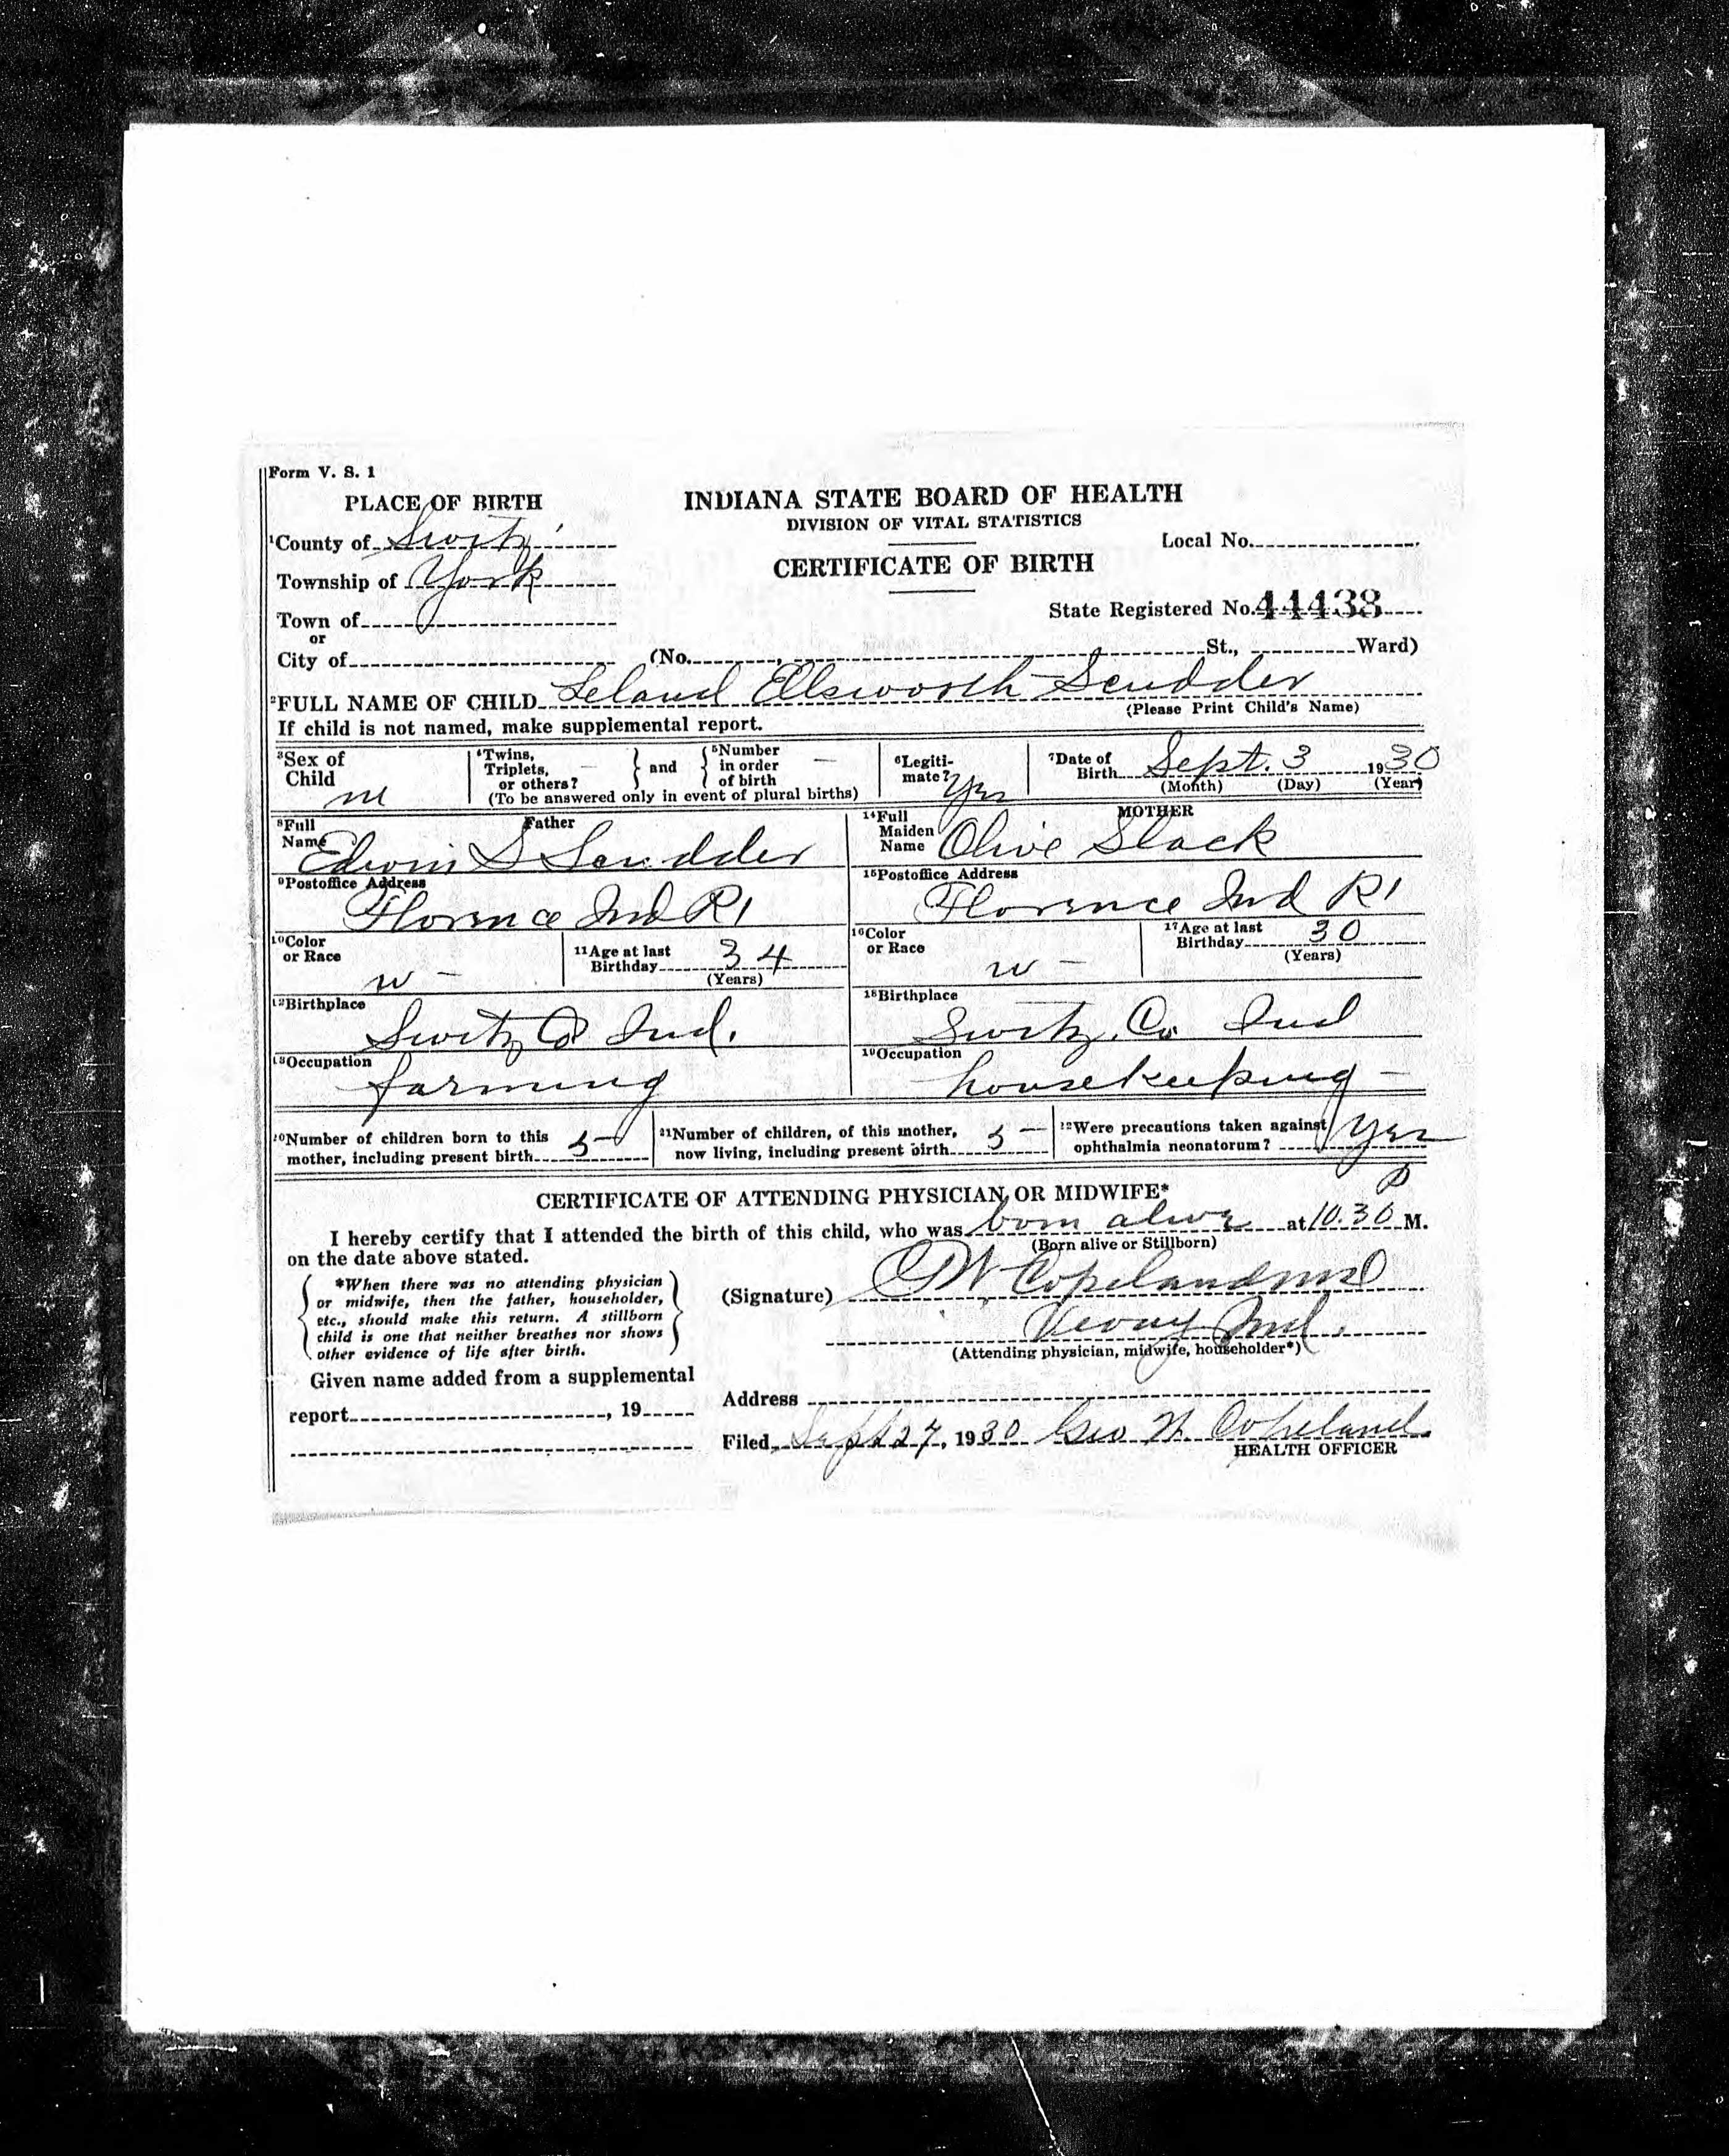 Form V. S. 1
PLACE OF BIRTH
INDIANA STATE BOARD OF HEALTH
DIVISION OF VITAL STATISTICS
1County of Switz
Local No.
Township of York
CERTIFICATE OF BIRTH
Town of
State Registered No. 44438
or
City of (No. , St., Ward)
2FULL NAME OF CHILD Leland Ellsworth Scudder
(Please Print Child's Name)
If child is not named, make supplemental report.
3Sex of Child m
4Twins, Triplets, or others? — } and { 5Number in order of birth —
(To be answered only in event of plural births)
6Legitimate? Yes
7Date of Birth Sept. 3 1930
(Month) (Day) (Year)
Father
8Full Name Edwin S Scudder
MOTHER
14Full Maiden Name Olive Slack
9Postoffice Address
Florence Ind R1
15Postoffice Address
Florence Ind R1
10Color or Race w -
11Age at last Birthday 34
(Years)
16Color or Race w -
17Age at last Birthday 30
(Years)
12Birthplace
Switz Co Ind.
18Birthplace
Switz. Co Ind
13Occupation
farming
19Occupation
housekeeping -
20Number of children born to this
mother, including present birth 5
21Number of children, of this mother,
now living, including present birth 5
22Were precautions taken against
ophthalmia neonatorum? Yes
CERTIFICATE OF ATTENDING PHYSICIAN OR MIDWIFE*
I hereby certify that I attended the birth of this child, who was born alive at 10.30 P M.
(Born alive or Stillborn)
on the date above stated.
*When there was no attending physician
or midwife, then the father, householder,
etc., should make this return. A stillborn
child is one that neither breathes nor shows
other evidence of life after birth.
(Signature) Copeland md
Vevay Ind.
(Attending physician, midwife, householder*)
Given name added from a supplemental
report , 19
Address
Filed Sept 27, 1930 Geo W. Copeland
HEALTH OFFICER